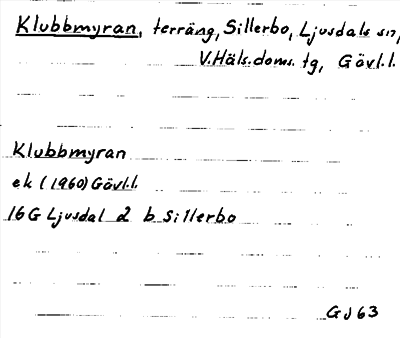 Klubbmyran, terräng, Sillerbo, Ljusdals sn,
V.Häls.doms. tg, Gävl.l.
Klubbmyran
ek (1960) Gävl.l.
16 G Ljusdal 2 b Sillerbo
GJ 63